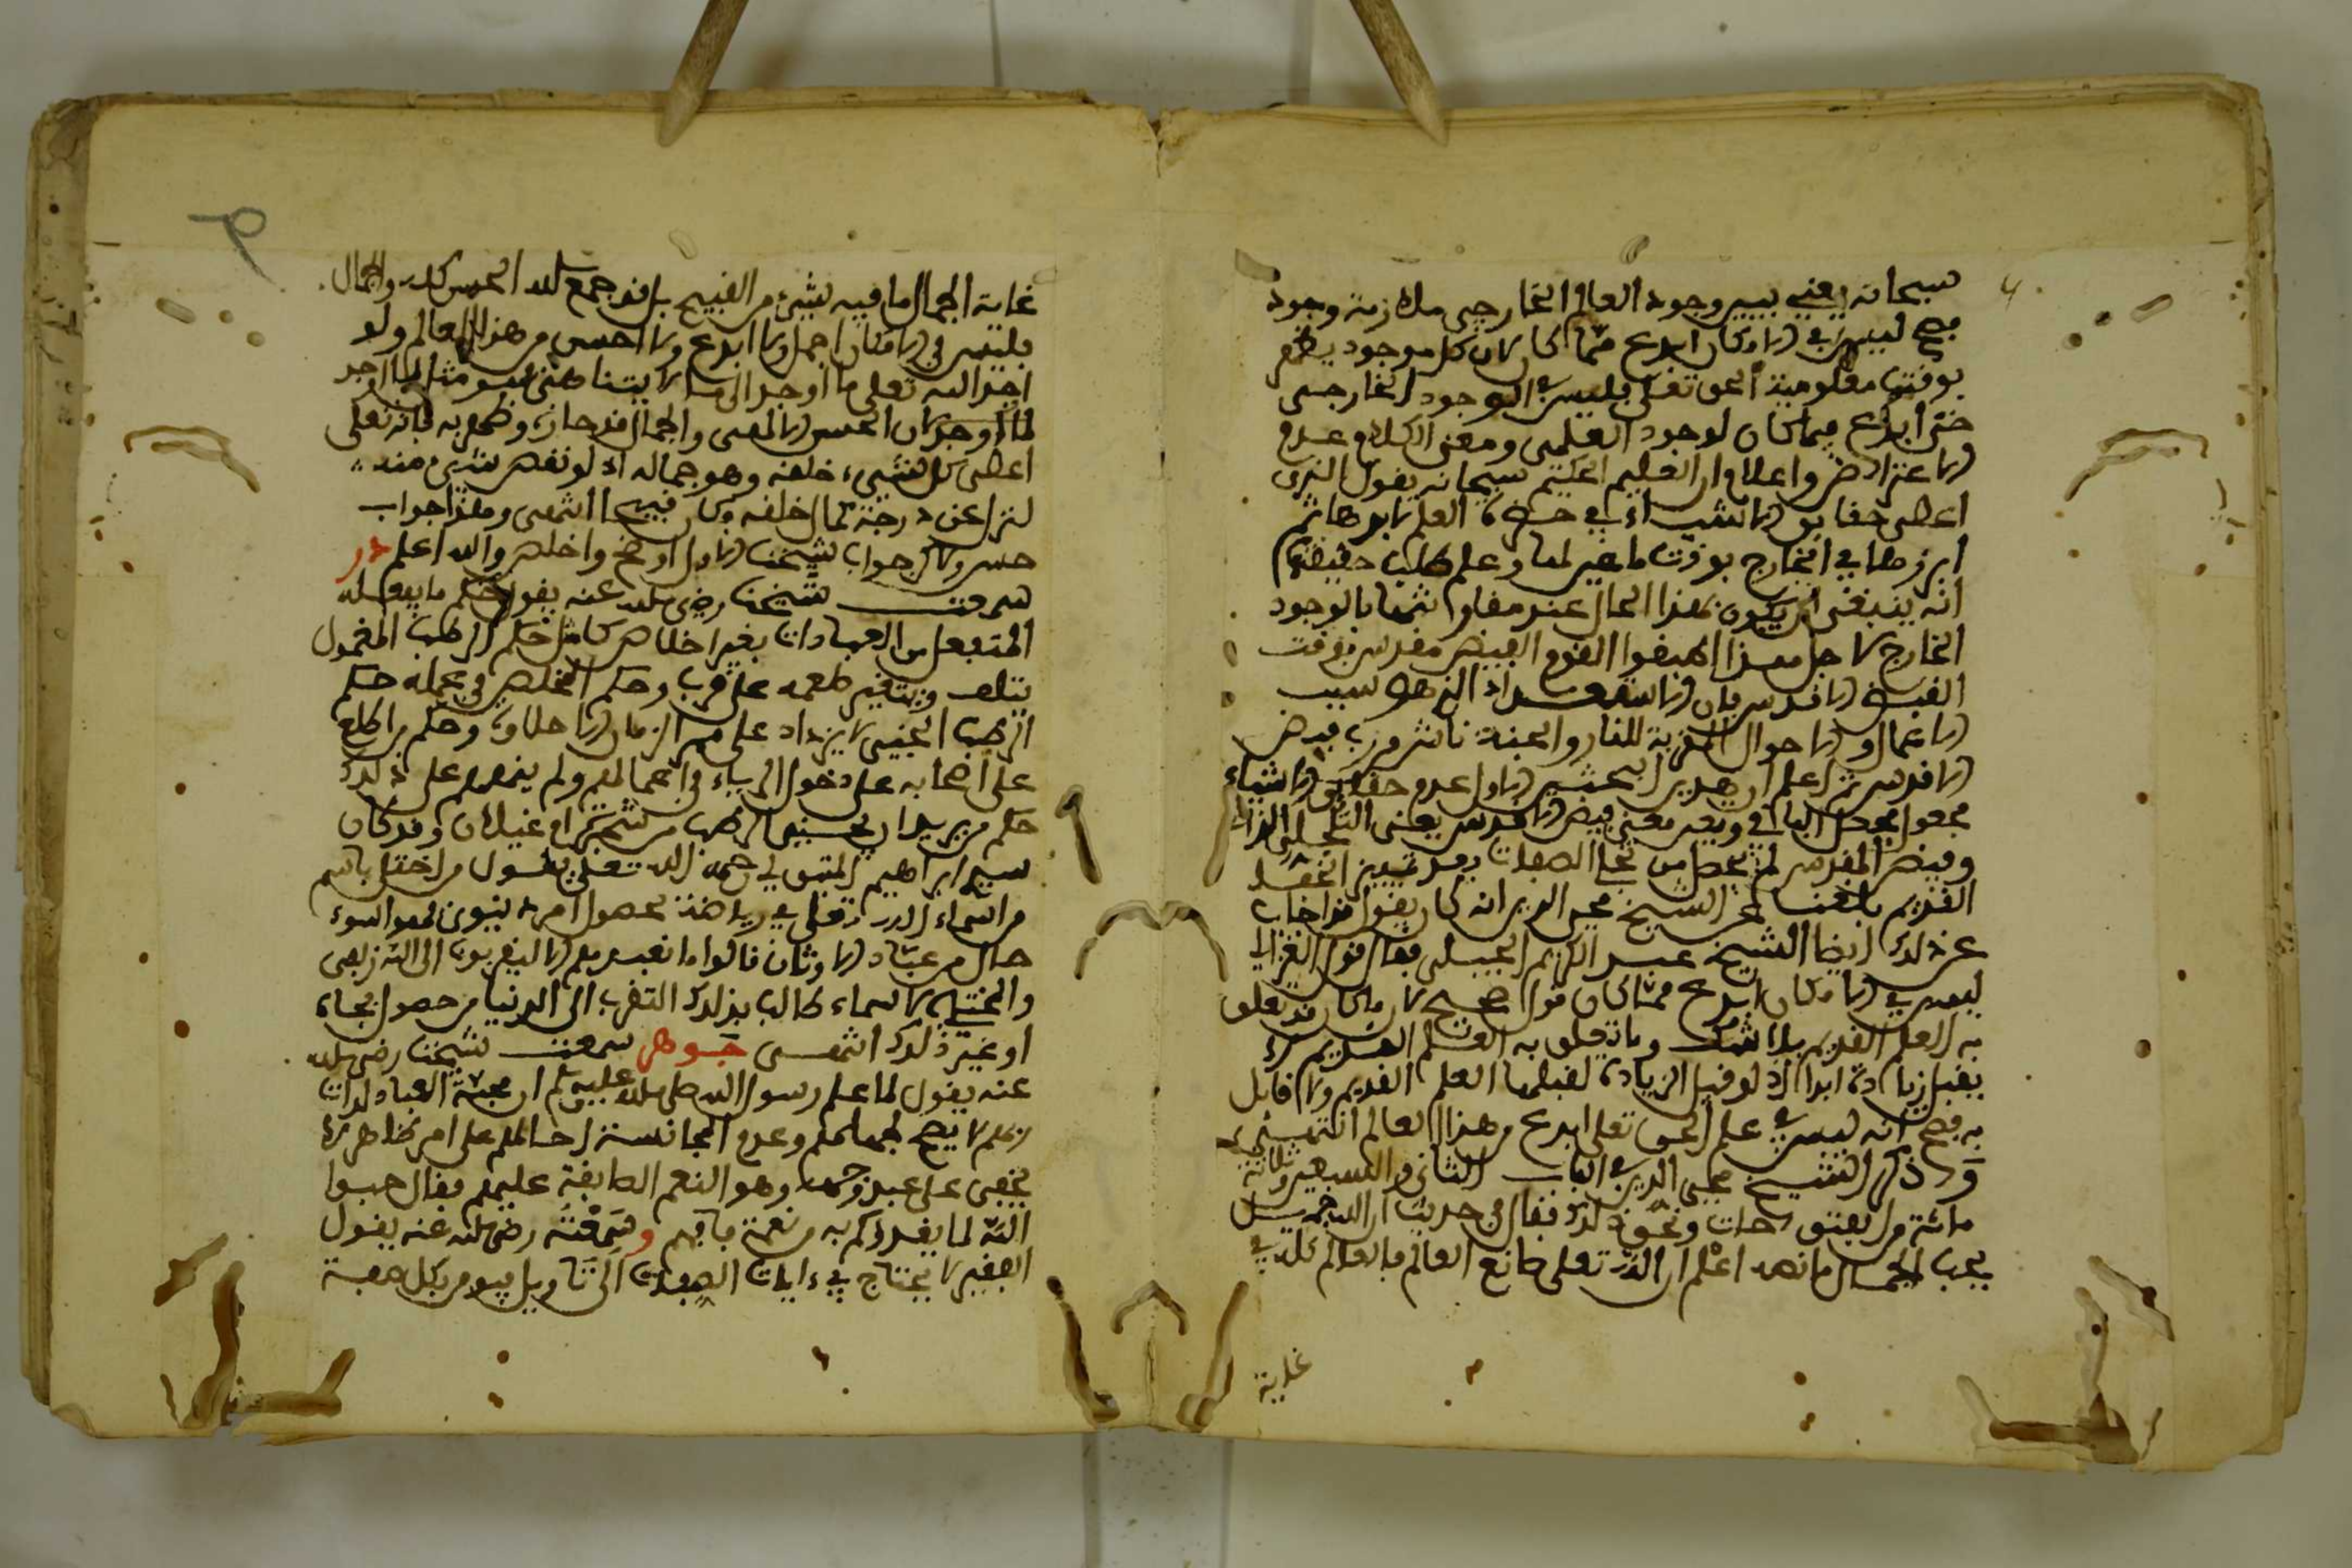 سبحانه يعني بين وجود العالم الخارجي ملازمة وجود
فصح ليس في الامكان ابدع مما كان لان كل موجود يظهر
بوقت معلومية الحق تعلى فليس في الوجود الخارجي
حتى ابدع مما كان لوجود العلمي ومعنى الكلام عدم
الاعتراض واعلام ان العليم الحكيم سبحانه يقول الذي
اعطى حقايق الاشياء في حضرة العلم لابدها ثم
ابرزها في الخارج بوقت ما هي لها وعلم طلب حقيقة
انه ينبغي ان يكون بهذا الحال عند مفاوا تنها بالوجود
الخارج لاجل هذا اتفقوا القوم الفيض مقدس بوقت
الفيض الاقدس فان الاستعداد الذي هو سبب
الاعمال والاحوال المقربة للنار والجنة ناش من رب فيض
الاقدس ثم اعلم ان هدير البحث الاول عدم حقايق الاشياء
مجعول بجعل الباقي ويعبر معنى فيض الاقدس يعني التجلي الذات
وفيض المقدس لم يحصل من تجلي الصفات بعد تمييز الحقد
القديم بلغنا عن الشيخ محي الدين انه كان يقول قد اجاب
عن ذلك ايضا الشيخ عبد الكريم الجيلي فقال قول الغزالي
ليس في الامكان ابدع مما كان قول صحيح لان ما كان قد تعلق
به العلم القديم بلا شك وما تعلق به العلم القديم لا
يقبل زيادة ابدا اذ لو قبل الزيادة لقبلها العلم القديم ولا قابل
به فصح انه ليس في علم الحق تعلى ابدع من هذا العالم انتهى
وذكر الشيخ محي الدين في الباب الثاني والسبعين وثلاثة
مائة من الفتوحات ونحو ذلك فقال في حديث ان الله جميل
يحب الجمال ما نصه اعلم ان الله تعلى صانع العالم فالعالم كله في
غاية
غاية الجمال ما فيه شيء من القبيح بل قد جمع الله الحسن كله والجمال
فليس في الامكان اجمل ولا ابدع ولا احسن من هذا العالم ولو
اوجد الله تعلى ما اوجد الى ما لا يتناهى فهو مثل لما اوجد
لما اوجد لان الحسن الالهي والجمال قد حازه وظهر به فانه تعلى
اعطى كل شيء خلقه وهو جماله اذ لو نقص شيء منه
لنزل عن درجة كمال خلقه وكان قبيحا انتهى وهذا جواب
حسن ولاكن جواب شيخنا الاول اوضح واخلص والله اعلم در
سمعت شيخنا رضي الله عنه يقول حكم ما يفعله
المتفعل من العبادات بغير اخلاص كامل حكم الرطب المغمول
يتلف ويتغير طعمه عن قرب وحكم المخلص في عمله حكم
الرطب الجني لا يزداد على مر الزمان الا حلاوة وحكم من اطلع
على اصحابه على دخول الرياء في اعمالهم ولم ينههم على ذلك
حكم من يريد ان يجتني الرطب من شجر ام غيلان وقد كان
سيدي ابراهيم المتبولي رحمه الله تعلى يقول من اختلى باسم
من اسماء الله تعلى في رياضة لحصول امر دنيوي فهو اسوء
حال من عباد الاوثان قالوا ما نعبدهم الا ليقربونا الى الله زلفى
والمختلي بالاسماء طالب بذلك التقرب الى الدنيا من حصول جاه
او غير ذلك انتهى جوهر سمعت شيخنا رضي الله
عنه يقول لما علم رسول الله صلى الله عليه وسلم ان محبة العباد لذات
ربهم لا يصح لجهلهم وعدم المجانسة احالهم على امر ظاهر لا
يخفى على عبد وجهه وهو النعم الطايفة عليهم فقال حبوا
الله لما يغذوكم به من نعمة فافهم وسمعته رضي الله عنه يقول
الفقير لا يحتاج في ءايات الصفات الى تاويل فيومن بكل صفة